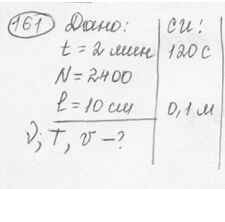 161 Дано: СИ:
t = 2 мин 120 С
N = 2400
l = 10 см 0,1 м
ν; T, v - ?